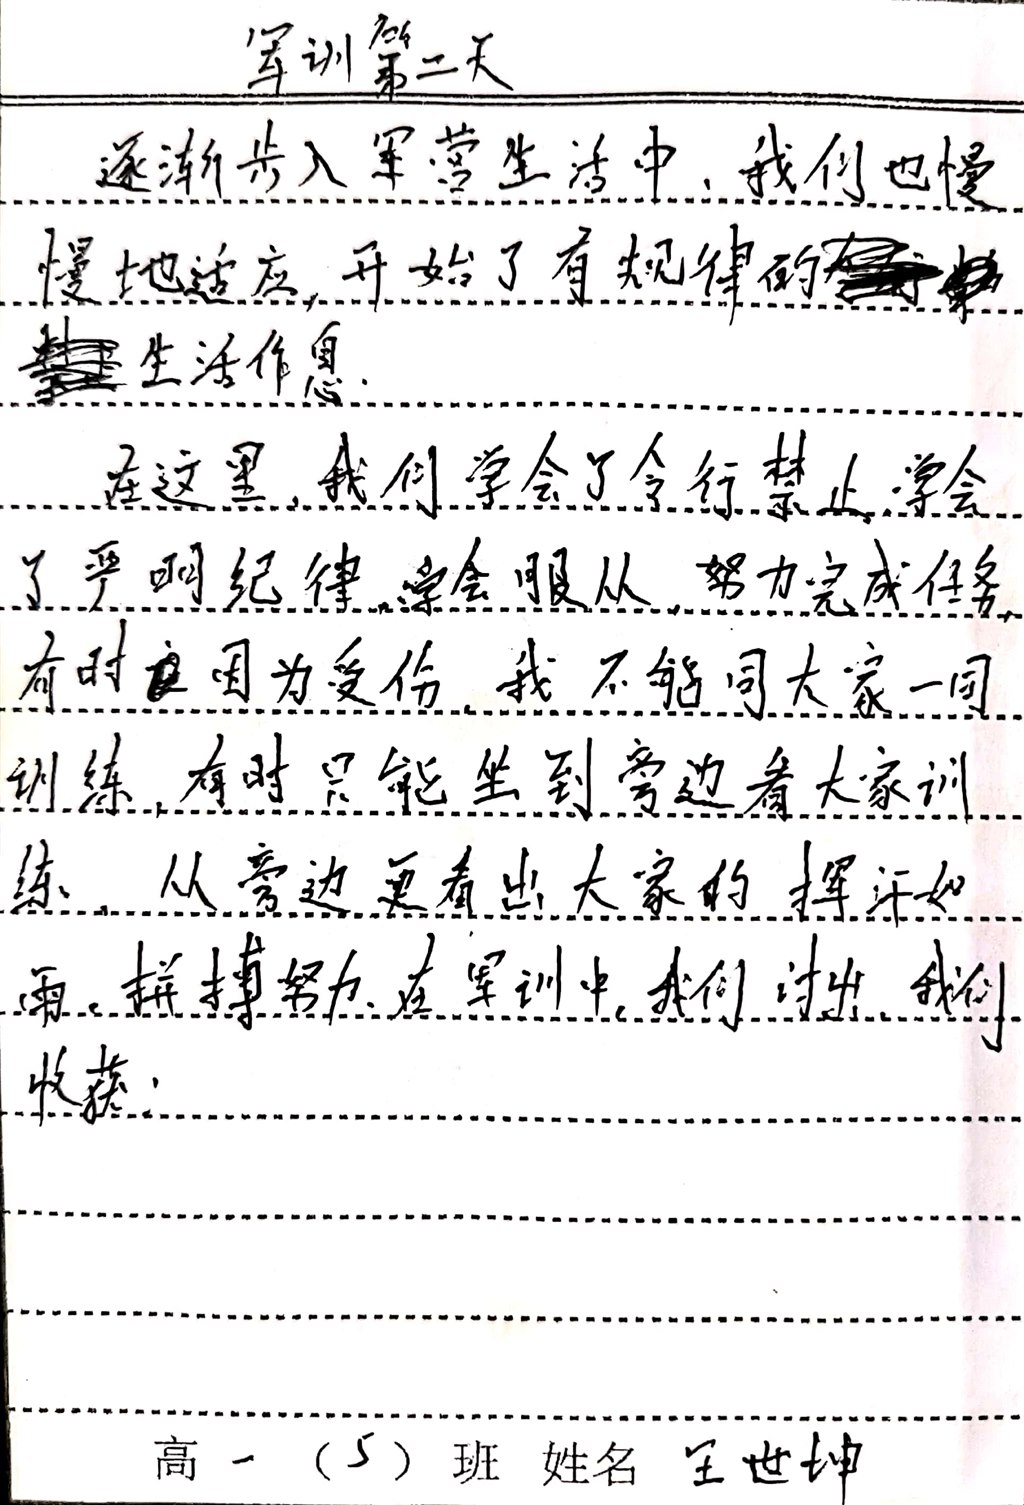 军训第二天
逐渐步入军营生活中，我们也慢
慢地适应，开始了有规律的
生活作息.
在这里，我们学会了令行禁止，学会
了严明纪律，学会服从，努力完成任务，
有时因为受伤，我不能同大家一同
训练，有时只能坐到旁边看大家训
练，从旁边更看出大家的挥汗如
雨、拼搏努力、在军训中，我们付出，我们
收获.
高一（5）班 姓名 王世坤